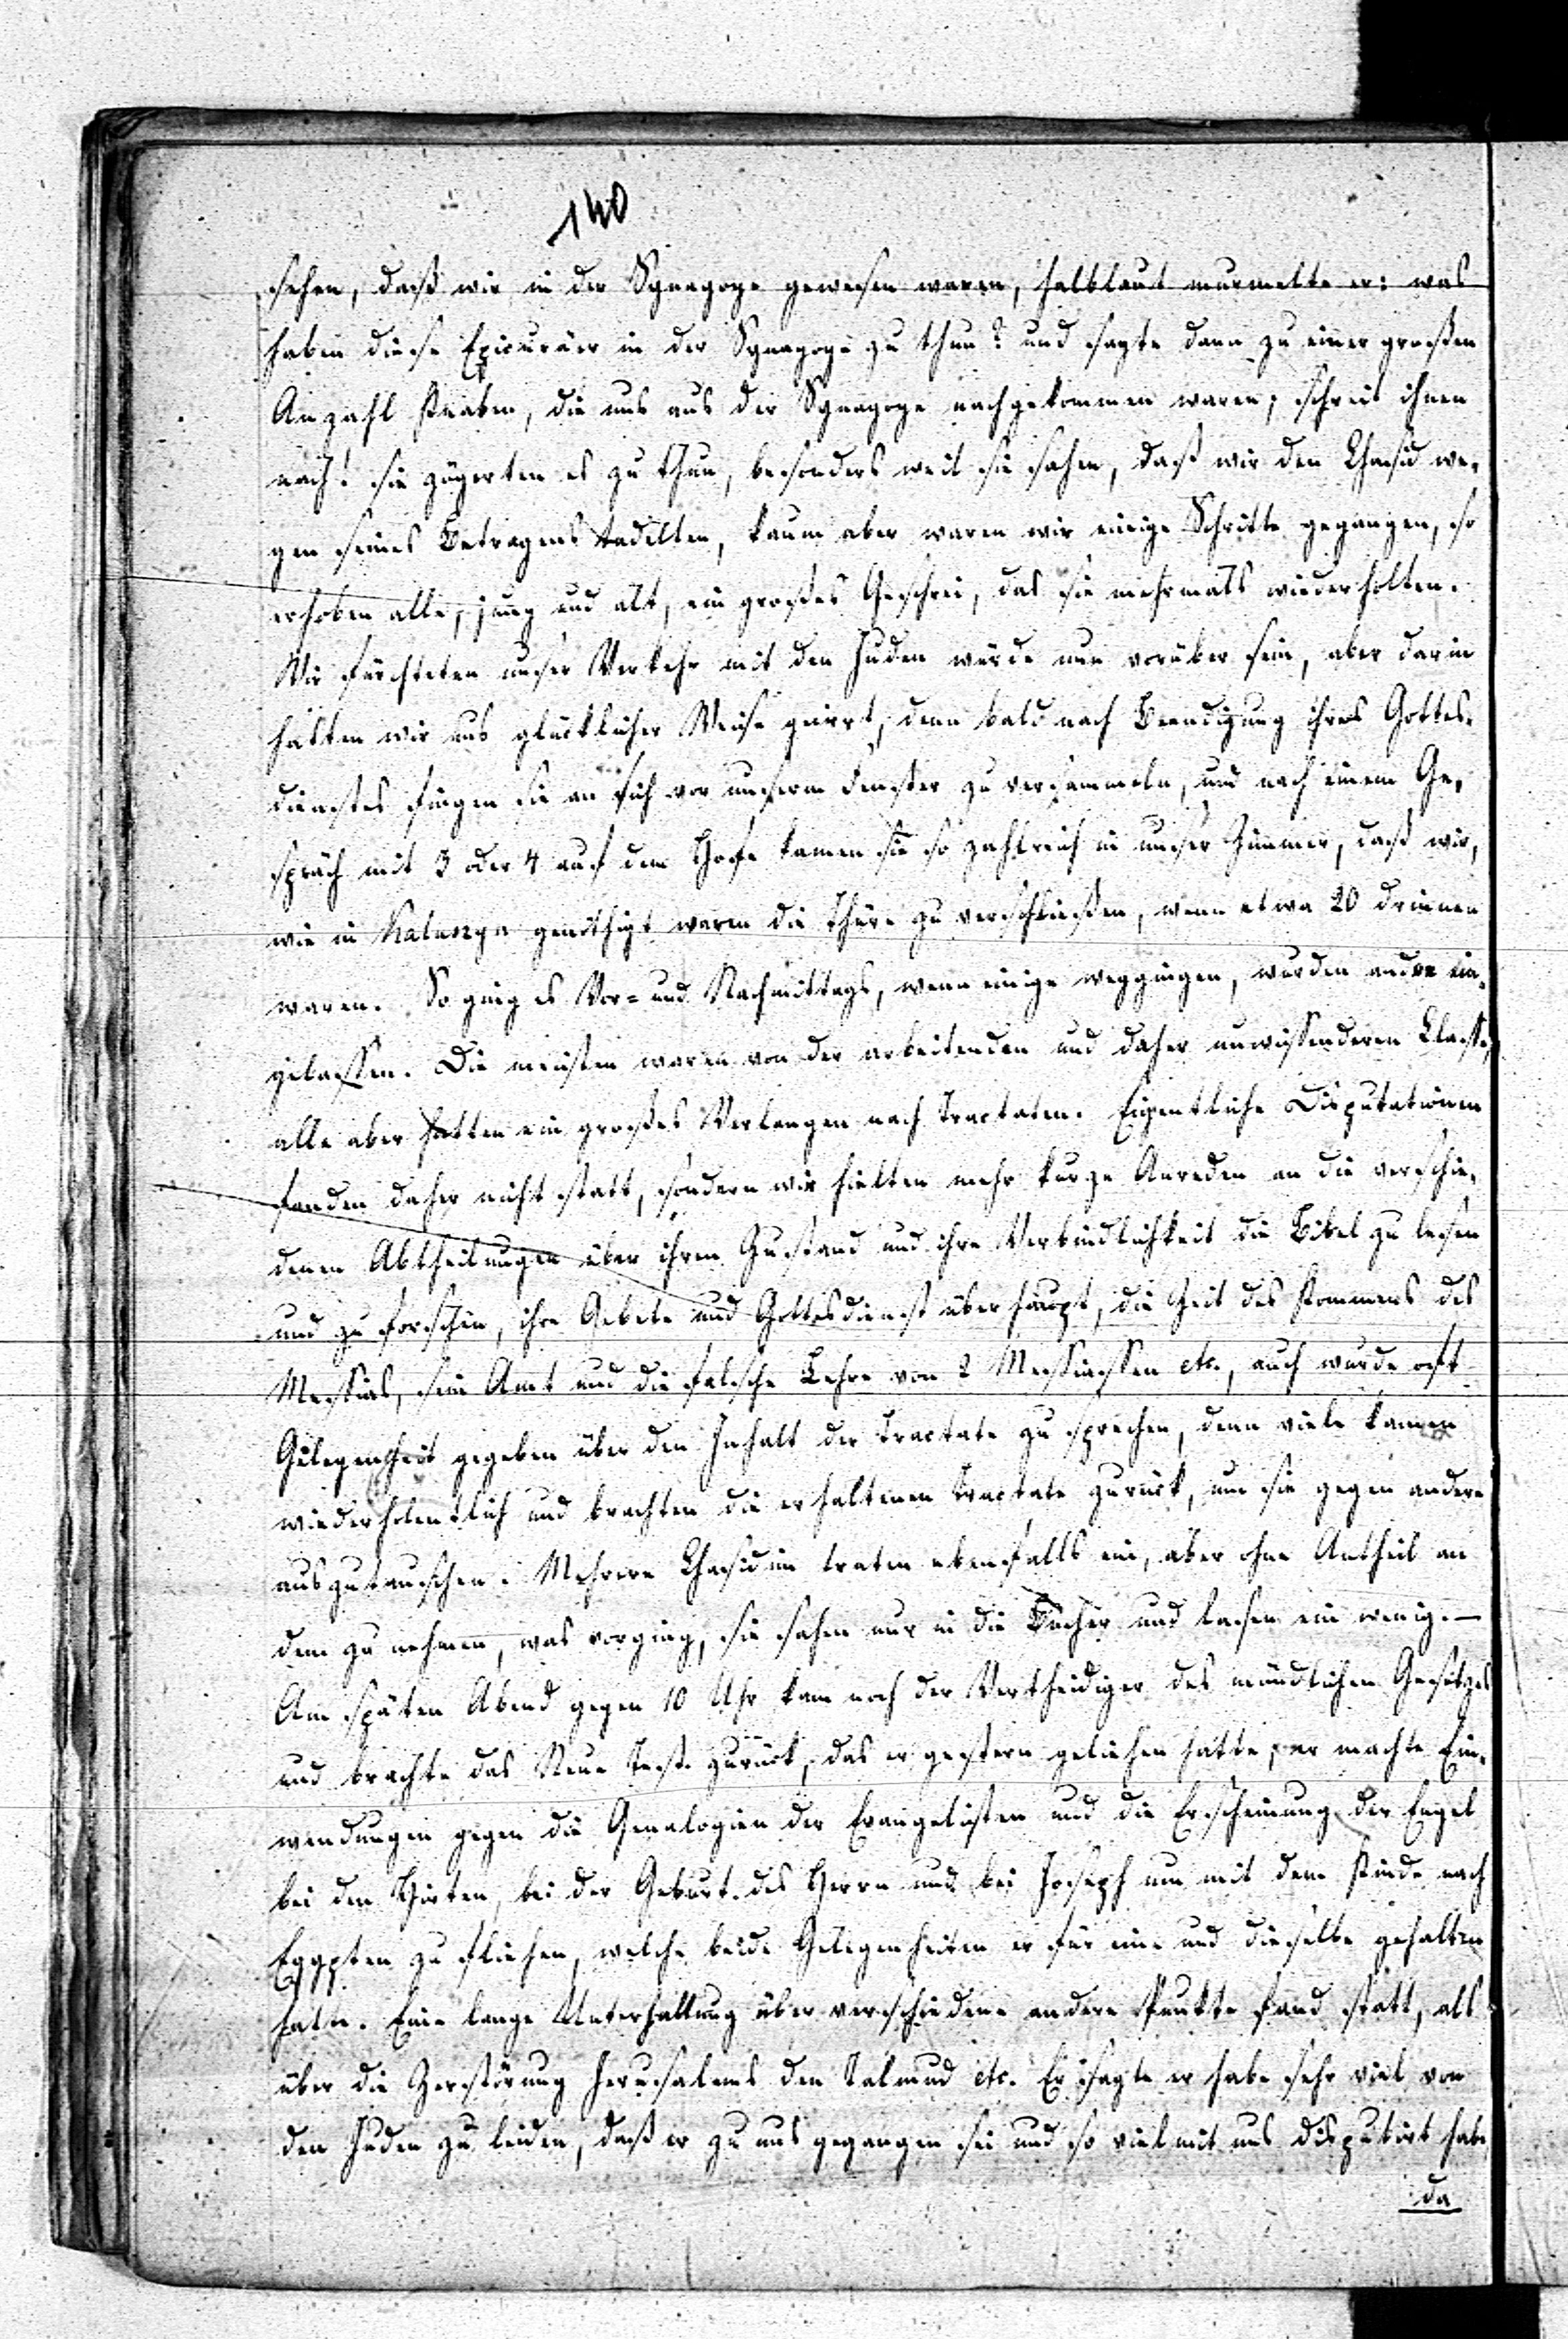 140
sehen, daß wir in der Synagoge gewesen waren, halblaut murmelte er: was
haben diese Epicuräer in der Synagoge zu thun? und sagte dann zu einer großen
Anzahl Knaben, die uns aus der Synagoge nachgekommen waren; schreit ihnen
nach! sie zögerten es zu thun, besonders weil sie sahen, daß wir den Chasid we-
gen seines Betragens tadelten, kaum aber waren wir einige Schritte gegangen, so
erhoben alle, jung und alt, ein großes Geschrei, das sie mehrmals wiederholten.
Wir fürchteten unser Verkehr mit den Juden würde nun vorüber sein, aber darin
hatten wir uns glücklicher Weise geirrt, denn bald nach Beendigung ihres Gottes-
dienstes fingen sie an sich vor unserm Fenster zu versammeln, und nach einem Ge-
spräch mit 3 oder 4 auf dem Hofe kamen sie so zahlreich in unser Zimmer, daß wir,
wie in Kaluszyn genöthigt waren die Thüre zu verschließen, wenn etwa 20 drinnen
waren. So ging es Vor- und Nachmittags, wenn einige weggingen, wurden andre ein-
gelassen. Die meisten waren von der arbeitenden und daher unwissenderen Classe,
alle aber hatten ein großes Verlangen nach Tractaten. Eigentliche Disputationen
fanden daher nicht statt, sondern wir hielten mehr kurze Anreden an die verschie-
denen Abtheilungen über ihren Zustand und ihre Verbindlichkeit die Bibel zu lesen
und zu forschen, ihre Gebete und Gottesdienst überhaupt, die Zeit des Kommens des
Messias, sein Amt und die falsche Lehre von 2 Messiassen etc., auch wurde oft
Gelegenheit gegeben über den Inhalt der Tractate zu sprechen, denn viele kamen
wiederholentlich und brachten die erhaltenen Tractate zurück, um sie gegen andere
auszutauschen. Mehrere Chasidim traten ebenfalls ein, aber ohne Antheil an
dem zu nehmen, was vorging, sie sahen nur in die Bücher und lasen ein wenig. —
Am späten Abend gegen 10 Uhr kam noch der Vertheidiger des mündlichen Gesetzes
und brachte das Neue Test. zurück, das er gestern geliehen hatte, er machte Ein-
wendungen gegen die Genalogien der Evangelisten und die Erscheinung der Engel
bei den Hirten, bei der Geburt des Herrn und bei Joseph um mit dem Kinde nach
Egypten zu fliehen, welche beide Gelegenheiten er für eine und dieselbe gehalten
hatte. Eine lange Unterhaltung über verschiedene andere Punkte fand statt, als
über die Zerstörung Jerusalems den Talmud etc. Er sagte er habe sehr viel von
den Juden zu leiden, daß er zu uns gegangen sei und so viel mit uns disputirt habe
da